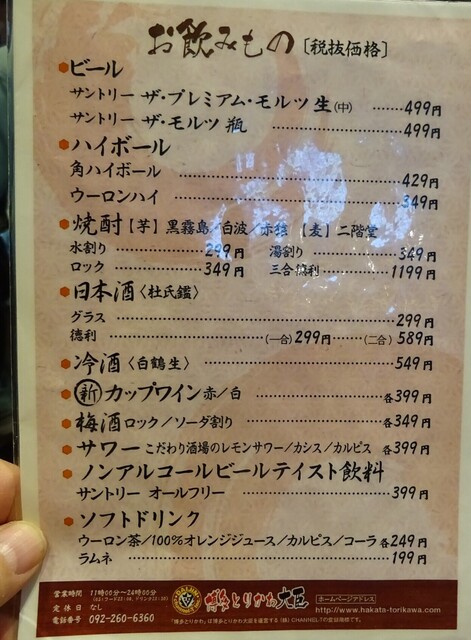 お飲みもの [税抜価格]
ビール
サントリー ザ・プレミアム・モルツ 生(中) ……499円
サントリー ザ・モルツ 瓶 ……499円
ハイボール
角ハイボール ……429円
ウーロンハイ ……349円
焼酎【芋】黒霧島/白波/赤 【麦】二階堂
水割り ……299円 湯割り ……349円
ロック ……349円 三合徳利 ……1199円
日本酒〈杜氏鑑〉
グラス ……299円
徳利 ……(一合)299円……(二合)589円
冷酒〈白鶴生〉 ……549円
新 カップワイン 赤/白 ……各399円
梅酒 ロック/ソーダ割り ……各349円
サワー こだわり酒場のレモンサワー/カシス/カルピス 各399円
ノンアルコールビールテイスト飲料
サントリー オールフリー ……399円
ソフトドリンク
ウーロン茶/100%オレンジジュース/カルピス/コーラ 各249円
ラムネ ……199円
営業時間 11時00分〜24時00分
定休日 なし
電話番号 092-260-6360
博多とりかわ大臣
ホームページアドレス
http://www.hakata-torikawa.com/